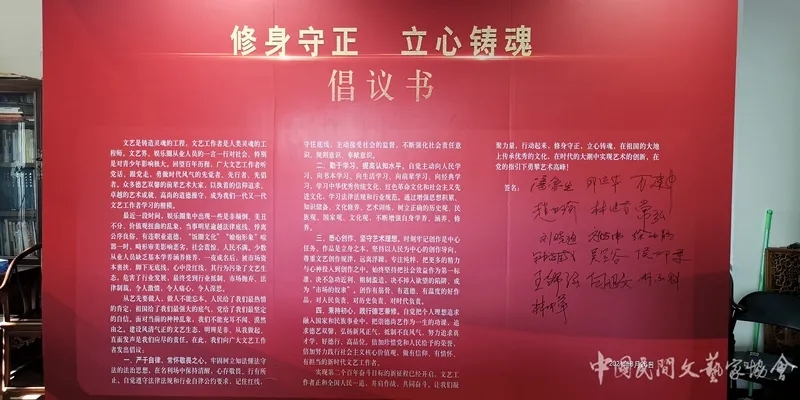 修身守正 立心铸魂
倡议书
文艺是铸造灵魂的工程，文艺工作者是人类灵魂的工
程师。文艺界、娱乐圈从业人员的一言一行对社会、特别
是对青少年影响极大。回望百年历程，广大文艺工作者听
党话、跟党走，勇做时代风气的先觉者、先行者、先倡
者。众多德艺双馨的前辈艺术大家，以执着的信仰追求、
卓越的艺术成就、高尚的道德操守，成为我们一代又一代
文艺工作者学习的楷模。
最近一段时间，娱乐圈集中出现一些是非颠倒、美丑
不分、价值观扭曲的乱象。当事明星逾越法律底线，悖离
公序良俗，有违职业道德。
一些时，畸形审美影响恶劣，社会震惊、人民不满。少数
从业人员缺乏基本学养涵修养，一夜成名后，被市场资
本裹挟，脚下无底线，心中没红线，其行为污染了文艺生
态，危害了行业发展，最终受到行业抵制、市场抛弃、法
律制裁，令人激愤，令人痛心，令人深思。
从艺先要做人，做人不能忘本。人民给了我们最热情
的肯定，祖国给了我们最强大的底气，党给了我们最坚定
的自信。面对当前的种种乱象，我们不能充耳不闻、漠然
由之，建设风清气正的文艺生态，明辨是非、从我做起、
直面发声是我们应尽的责任。在此，我们向广大文艺工作
者发出倡议：
一、严于自律，常怀敬畏之心。牢固树立知法懂法守
法的法治思想，在名利场中保持清醒，心存敬畏、行有所
正。自觉遵守法律法规和行业自律公约要求，记住红线、
守住底线，主动接受社会的监督，不断强化社会责任意
识、规则意识、奉献意识。
二、勤于学习，提高认知水平。自觉主动向人民学
习、向书本学习、向生活学习、向前辈学习、向经典学
习，学习中华优秀传统文化、红色革命文化和社会主义先
进文化，学习法律法规和行业规范。通过增强思想积累、
知识储备、文化修养、艺术训练，树立正确的历史观、民
族观、国家观、文化观，不断增强自身学养、涵养、修
养。
三、悉心创作，坚守艺术理想。时刻牢记创作是中心
任务、作品是立身之本。坚持以人民为中心的创作导向，
尊重文艺创作规律，远离浮躁、专注纯粹，把更多的精力
与心神投入到创作之中，始终坚持把社会效益作为第一标
准。决不急功近利、粗制滥造、决不掉入欲望的陷阱，成
为“市场的奴隶”，创作有筋骨、有道德、有温度的好作
品，对人民负责、对历史负责、对时代负责。
四、秉持初心，践行德艺兼修。自觉把个人理想追求
融入国家和民族事业中，把崇德尚艺作为一生的功课，追
求德艺双馨，弘扬新风正气，抵制不良风气，努力追求真
才学、好德行、高品位，倍加珍惜党和人民给予的荣誉，
倍加努力践行社会主义核心价值观，做有信仰、有情怀、
有担当的新时代文艺工作者。
实现第二个百年奋斗目标的新征程已经开启，文艺工
作者正和全国人民一道，并肩作战、共同奋斗。让我们凝
聚力量，行动起来，修身守正，立心铸魂，在祖国的大地
上传承优秀的文化，在时代的大潮中实现艺术的创新，在
党的指引下勇攀艺术高峰！
签名：
中国民间文艺家协会